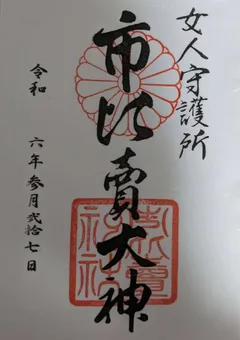 女人守護所
市比賣大神
令和 六年 参月弐拾七日